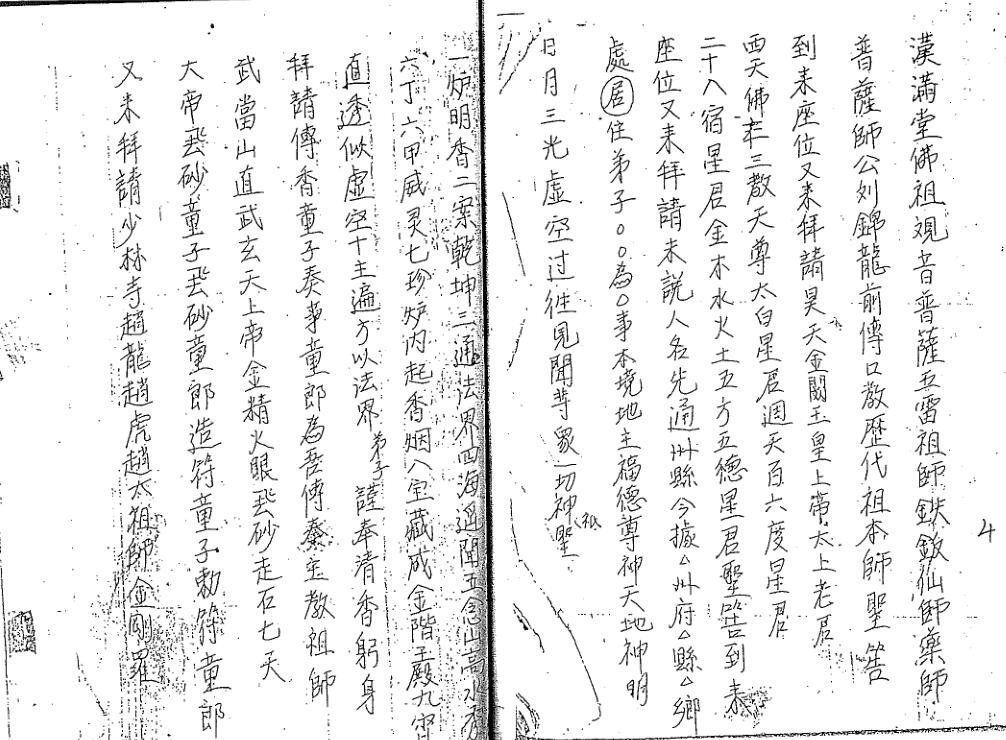 4
漢滿堂佛祖观音普薩五雷祖師鉄釵仙師藥師
普薩師公刘錦龍前傳口教歷代祖本師聖筶
到来座位又来拜請昊天金闕玉皇上帝太上老君
西天佛老三教天尊太白星君週天百六度星君
二十八宿星君金木水火土五方五德星君聖筶到来
座位又来拜請未説人名先通州縣今據△州府△縣△鄉
處居住弟子○○為○事本境地主福德尊神天地神明
日月三光虚空过往见聞等眾一切神祇聖
一炉明香二案乾坤三通法界四海遥聞五念山高水
六丁六甲威灵七珍炉内起香烟八宝藏成金階玉殿九霄
直透似虚空十主遍方以法界弟子謹奉清香躬身
拜請傳香童子奏事童郎為吾傳奏宝教祖師
武當山直武玄天上帝金精火眼飛砂走石七天
大帝飛砂童子飛砂童郎造符童子勅符童郎
又来拜請少林寺趙龍趙虎趙太祖師金剛羅